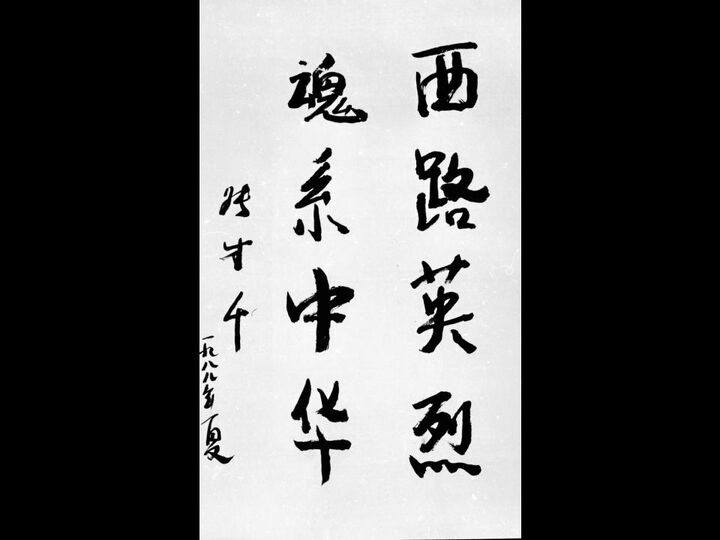 西路英烈
魂系中华
一九八八年夏